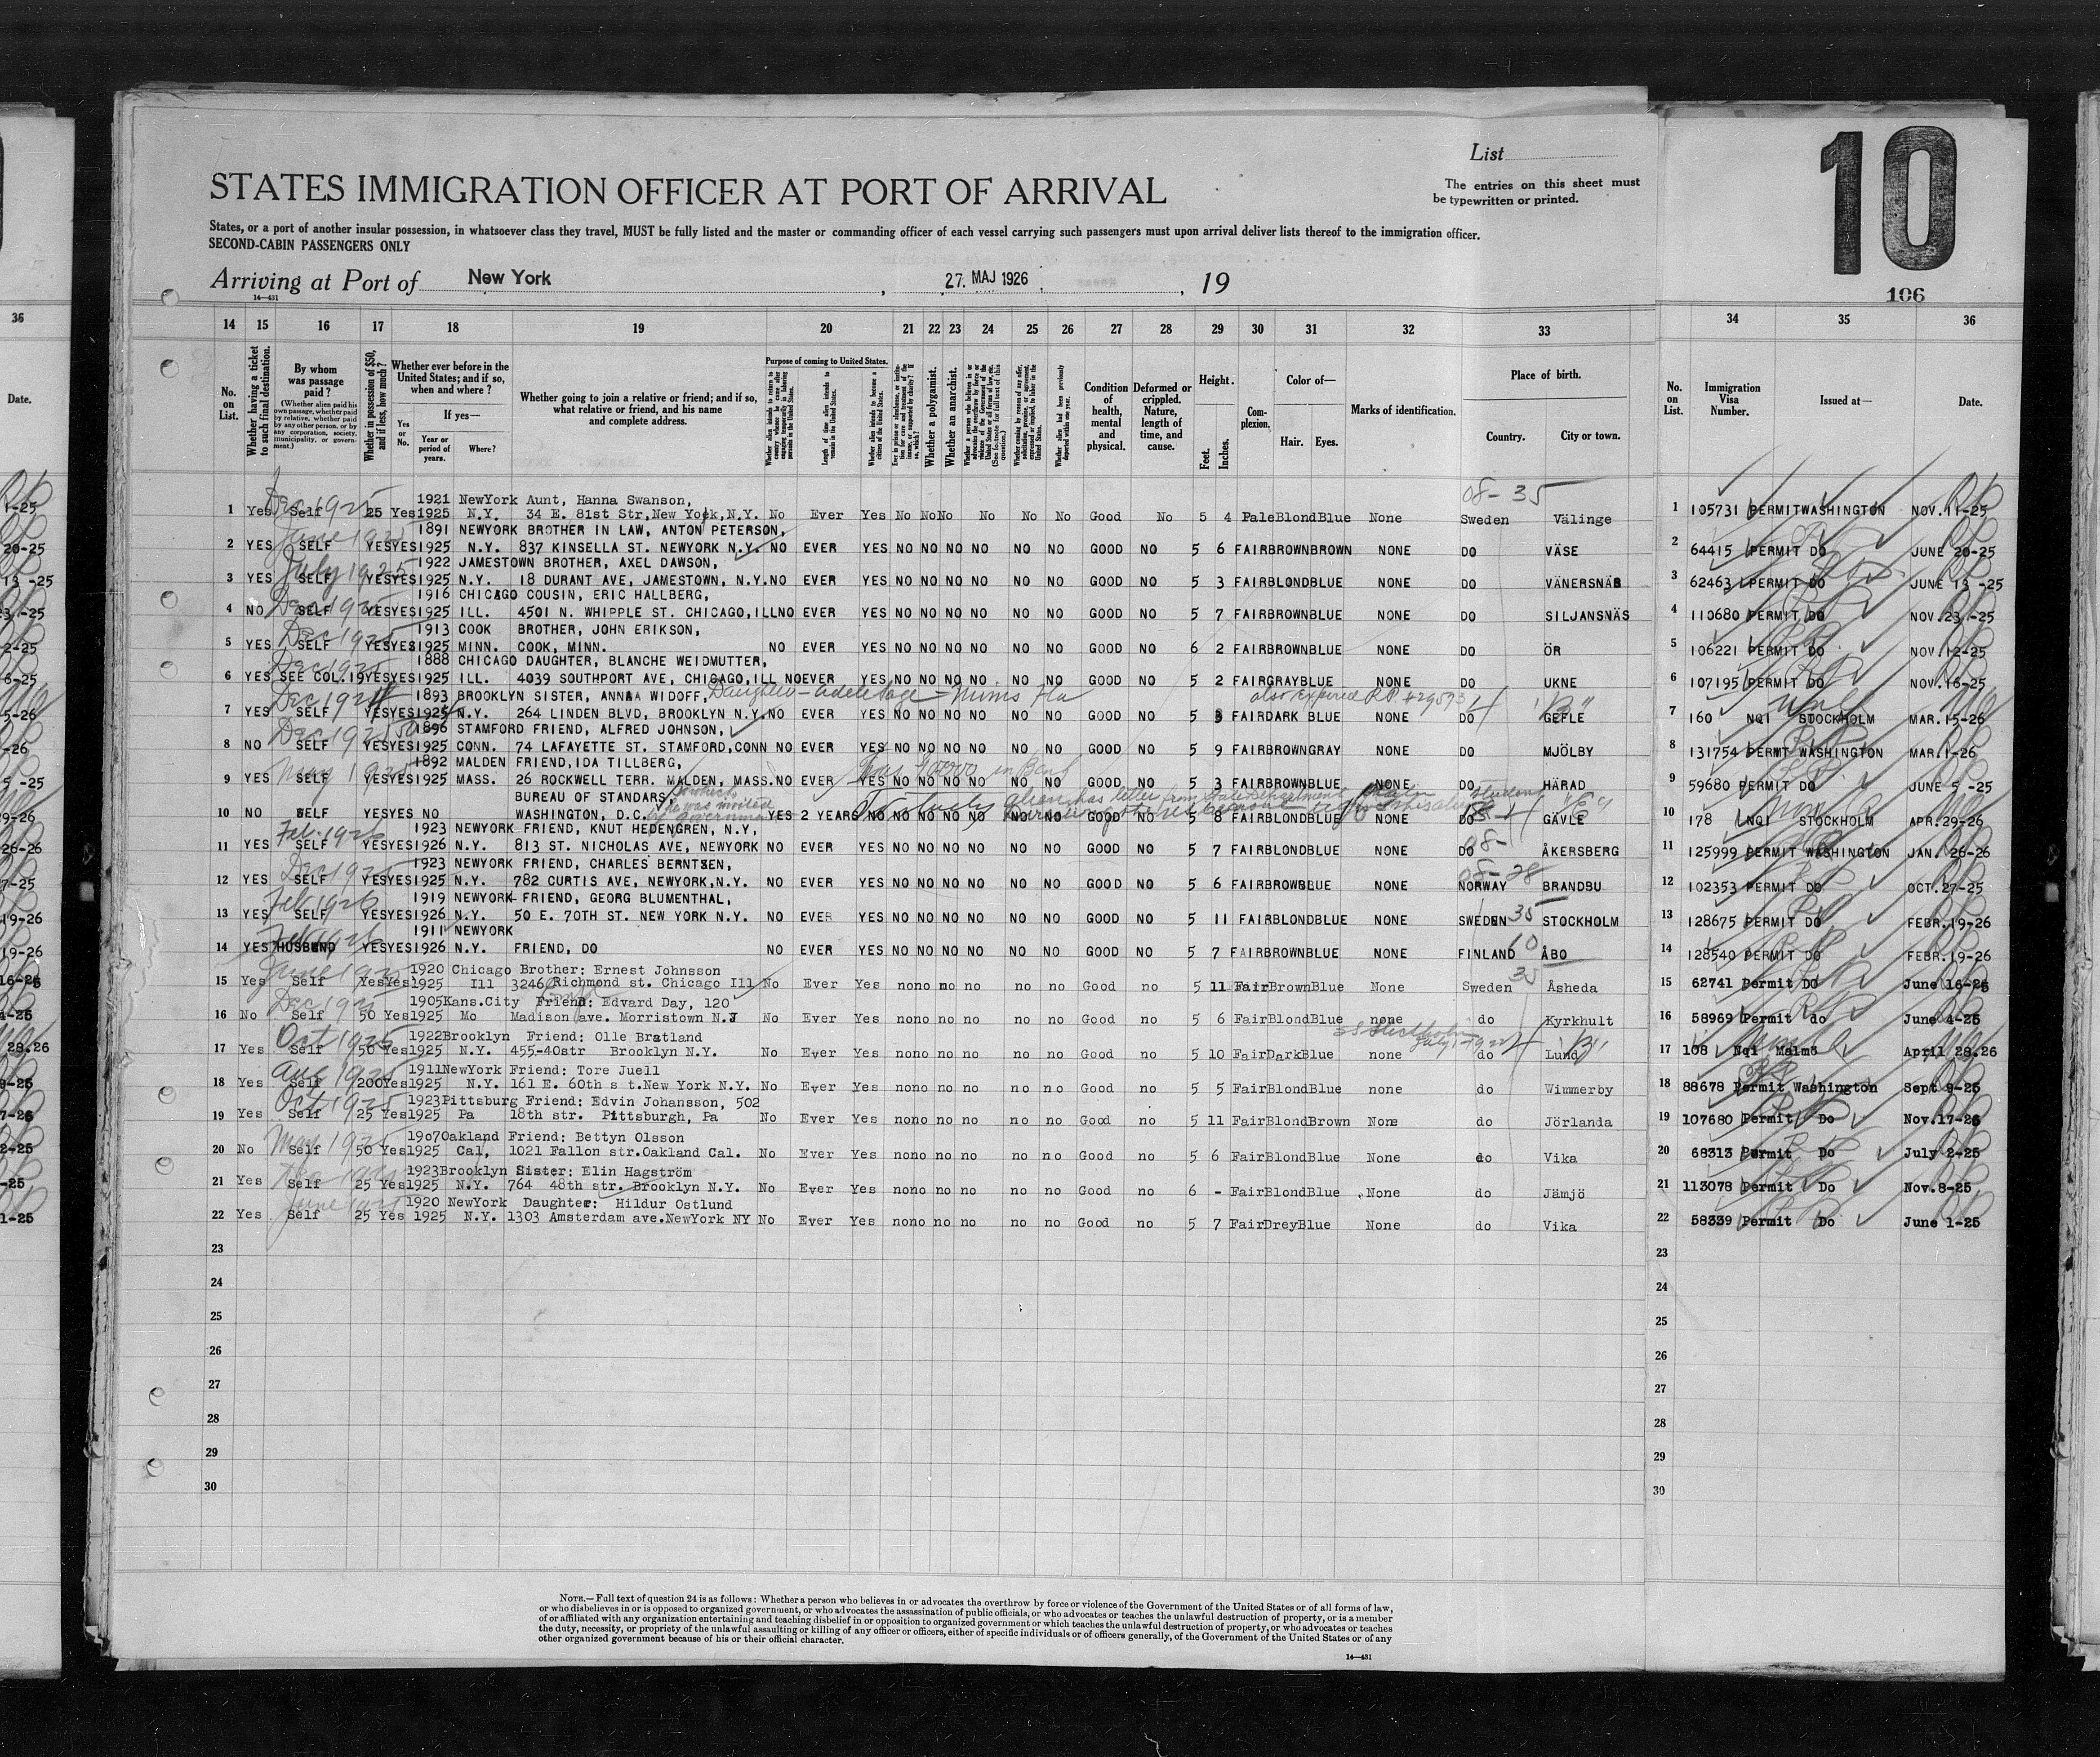 List
STATES IMMIGRATION OFFICER AT PORT OF ARRIVAL
The entries on this sheet must
be typewritten or printed.
States, or a port of another insular possession, in whatsoever class they travel, MUST be fully listed and the master or commanding officer of each vessel carrying such passengers must upon arrival deliver lists thereof to the immigration officer.
SECOND-CABIN PASSENGERS ONLY
Arriving at Port of New York, 27. MAJ 1926, 19
14—431
10
106
36
Date.
14 15 16 17 18 19 20 21 22 23 24 25 26 27 28 29 30 31 32 33 34 35 36
No. on List.
Whether having a ticket to such final destination.
By whom was passage paid?
(Whether alien paid his own passage, whether paid by relative, whether paid by any other person, or by any corporation, society, municipality, or government.)
Whether in possession of $50, and if less, how much?
Whether ever before in the United States; and if so, when and where?
Yes or No.
If yes—
Year or period of years.
Where?
Whether going to join a relative or friend; and if so, what relative or friend, and his name and complete address.
Purpose of coming to United States.
Whether a polygamist.
Whether an anarchist.
Condition of health, mental and physical.
Deformed or crippled. Nature, length of time, and cause.
Height.
Feet. Inches.
Complexion.
Color of—
Hair. Eyes.
Marks of identification.
Place of birth.
Country. City or town.
No. on List.
Immigration Visa Number.
Issued at—
Date.
08-35
1921 NewYork Aunt, Hanna Swanson,
1 Yes Self 25 Yes 1925 N.Y. 34 E. 81st Str, New York, N.Y. No Ever Yes No No No No No No Good No 5 4 Pale Blond Blue None Sweden Välinge 1 105731 PERMIT WASHINGTON NOV.11-25
1891 NEWYORK BROTHER IN LAW, ANTON PETERSON,
2 YES SELF YES YES 1925 N.Y. 837 KINSELLA ST. NEWYORK N.Y. NO EVER YES NO NO NO NO NO NO GOOD NO 5 6 FAIR BROWN BROWN NONE DO VÄSE 2 64415 PERMIT DO JUNE 20-25
1922 JAMESTOWN BROTHER, AXEL DAWSON,
3 YES SELF YES YES 1925 N.Y. 18 DURANT AVE, JAMESTOWN, N.Y. NO EVER YES NO NO NO NO NO NO GOOD NO 5 3 FAIR BLOND BLUE NONE DO VÄNERSNÄS 3 62463 PERMIT DO JUNE 13-25
1916 CHICAGO COUSIN, ERIC HALLBERG,
4 NO SELF YES YES 1925 ILL. 4501 N. WHIPPLE ST. CHICAGO, ILL NO EVER YES NO NO NO NO NO NO GOOD NO 5 7 FAIR BROWN BLUE NONE DO SILJANSNÄS 4 110680 PERMIT DO NOV.23.-25
1913 COOK BROTHER, JOHN ERIKSON,
5 YES SELF YES YES 1925 MINN. COOK, MINN. NO EVER YES NO NO NO NO NO NO GOOD NO 6 2 FAIR BROWN BLUE NONE DO ÖR 5 106221 PERMIT DO NOV.12-25
1888 CHICAGO DAUGHTER, BLANCHE WEIDMUTTER,
6 YES SEE COL.19 YES YES 1925 ILL. 4039 SOUTHPORT AVE, CHICAGO, ILL NO EVER YES NO NO NO NO NO NO GOOD NO 5 2 FAIR GRAY BLUE NONE DO UKNE 6 107195 PERMIT DO NOV.16-25
1893 BROOKLYN SISTER, ANNA WIDOFF, Daughter
also Expired RP #29573
7 YES SELF YES YES 1925 N.Y. 264 LINDEN BLVD, BROOKLYN N.Y. NO EVER YES NO NO NO NO NO NO GOOD NO 5 3 FAIR DARK BLUE NONE DO GEFLE 7 160 NQI STOCKHOLM MAR.15-26
1896 STAMFORD FRIEND, ALFRED JOHNSON,
8 NO SELF YES YES 1925 CONN. 74 LAFAYETTE ST. STAMFORD, CONN NO EVER YES NO NO NO NO NO NO GOOD NO 5 9 FAIR BROWN GRAY NONE DO MJÖLBY 8 131754 PERMT WASHINGTON MAR.1-26
1892 MALDEN FRIEND, IDA TILLBERG,
9 YES SELF YES YES 1925 MASS. 26 ROCKWELL TERR. MALDEN, MASS. NO EVER YES NO NO NO NO NO NO GOOD NO 5 3 FAIR BROWN BLUE NONE DO HÄRAD 9 59680 PERMIT DO JUNE 5-25
BUREAU OF STANDARS, to which he was invited by government
10 NO SELF YES YES NO WASHINGTON, D.C. YES 2 YEARS NO NO NO NO NO NO NO GOOD NO 5 8 FAIR BLOND BLUE NONE DO GÄVLE 10 178 NQI STOCKHOLM APR.29-26
1923 NEWYORK FRIEND, KNUT HEDENGREN, N.Y,
11 YES SELF YES YES 1926 N.Y. 813 ST. NICHOLAS AVE, NEWYORK NO EVER YES NO NO NO NO NO NO GOOD NO 5 7 FAIR BLOND BLUE NONE DO ÅKERSBERG 11 125999 PERMIT WASHINGTON JAN. 26-26
1923 NEWYORK FRIEND, CHARLES BERNTSEN,
08-28
12 YES SELF YES YES 1925 N.Y. 782 CURTIS AVE, NEWYORK, N.Y. NO EVER YES NO NO NO NO NO NO GOOD NO 5 6 FAIR BROW BLUE NONE NORWAY BRANDBU 12 102353 PERMIT DO OCT.27-25
1919 NEWYORK FRIEND, GEORG BLUMENTHAL,
13 YES SELF YES YES 1926 N.Y. 50 E. 70TH ST. NEW YORK N.Y. NO EVER YES NO NO NO NO NO NO GOOD NO 5 11 FAIR BLOND BLUE NONE SWEDEN 35 STOCKHOLM 13 128675 PERMIT DO FEBR.19-26
1911 NEWYORK
14 YES HUSBAND YES YES 1926 N.Y. FRIEND, DO NO EVER YES NO NO NO NO NO NO GOOD NO 5 7 FAIR BROWN BLUE NONE FINLAND 10 ÅBO 14 128540 PERMIT DO FEBR.19-26
1920 Chicago Brother: Ernest Johnsson
15 Yes Self Yes Yes 1925 Ill 3246 Richmond st. Chicago Ill No Ever Yes no no no no no no Good no 5 11 Fair Brown Blue None Sweden 35 Åsheda 15 62741 Permit DO June 16-25
1905 Kans.City Friend: Edvard Day, 120
16 No Self 50 Yes 1925 Mo Madison ave. Morristown N.J No Ever Yes no no no no no no Good no 5 6 Fair Blond Blue none do Kyrkhult 16 58969 Permit do June 4-25
1922 Brooklyn Friend: Olle Bratland
17 Yes Self 50 Yes 1925 N.Y. 455-40str Brooklyn N.Y. No Ever Yes no no no no no no Good no 5 10 Fair Dark Blue none do Lund 17 108 Nqi Malmö April 28.26
1911 NewYork Friend: Tore Juell
18 Yes Self 200 Yes 1925 N.Y. 161 E. 60th s t. New York N.Y. No Ever Yes no no no no no no Good no 5 5 Fair Blond Blue none do Wimmerby 18 88678 Permit Washington Sept 9-25
1923 Pittsburg Friend: Edvin Johansson, 502
19 Yes Self 25 Yes 1925 Pa 18th str. Pittsburgh, Pa No Ever Yes no no no no no no Good no 5 11 Fair Blond Brown None do Jörlanda 19 107680 Permit Do Nov.17-25
1907 Oakland Friend: Bettyn Olsson
20 No Self 50 Yes 1925 Cal, 1021 Fallon str. Oakland Cal. No Ever Yes no no no no no no Good no 5 6 Fair Blond Blue None do Vika 20 68313 Permit Do July 2-25
1923 Brooklyn Sister: Elin Hagström
21 Yes Self 25 Yes 1925 N.Y. 764 48th str. Brooklyn N.Y. No Ever Yes no no no no no no Good no 6 - Fair Blond Blue None do Jämjö 21 113078 Permit Do Nov.8-25
1920 NewYork Daughter: Hildur Ostlund
22 Yes Self 25 Yes 1925 N.Y. 1303 Amsterdam ave. NewYork NY No Ever Yes no no no no no no Good no 5 7 Fair Drey Blue None do Vika 22 58339 Permit Do June 1-25
23 23
24 24
25 25
26 26
27 27
28 28
29 29
30 30
NOTE.—Full text of question 24 is as follows: Whether a person who believes in or advocates the overthrow by force or violence of the Government of the United States or of all forms of law,
or who disbelieves in or is opposed to organized government, or who advocates the assassination of public officials, or who advocates or teaches the unlawful destruction of property, or is a member
of or affiliated with any organization entertaining and teaching disbelief in or opposition to organized government or which teaches the unlawful destruction of property, or who advocates or teaches
the duty, necessity, or propriety of the unlawful assaulting or killing of any officer or officers, either of specific individuals or of officers generally, of the Government of the United States or of any
other organized government because of his or their official character.
14—431